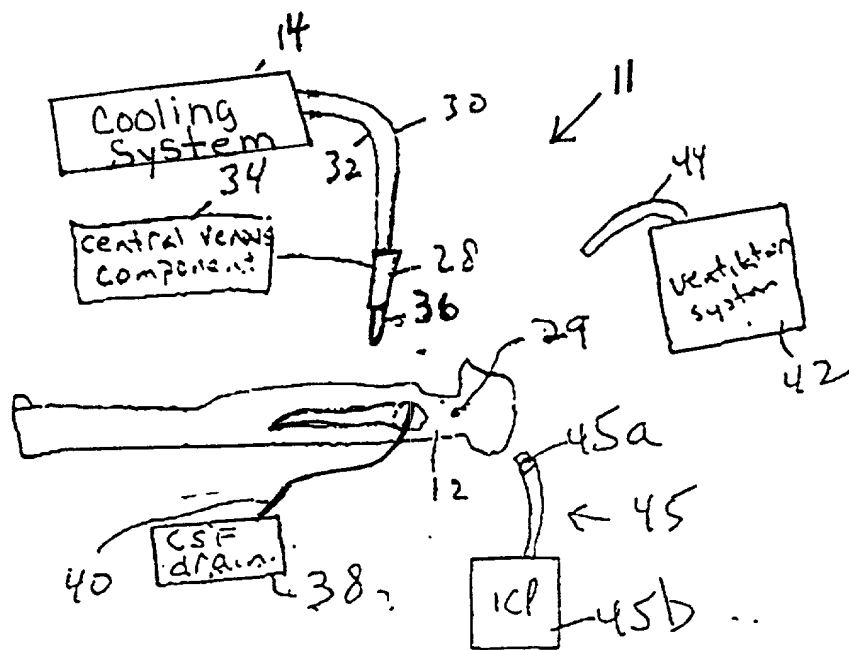 14
11
Cooling
System
30
32
44
34
central venus
component
28
36
ventilator
system
42
29
45a
12
45
40
CSF
drain
38
ICP
45b